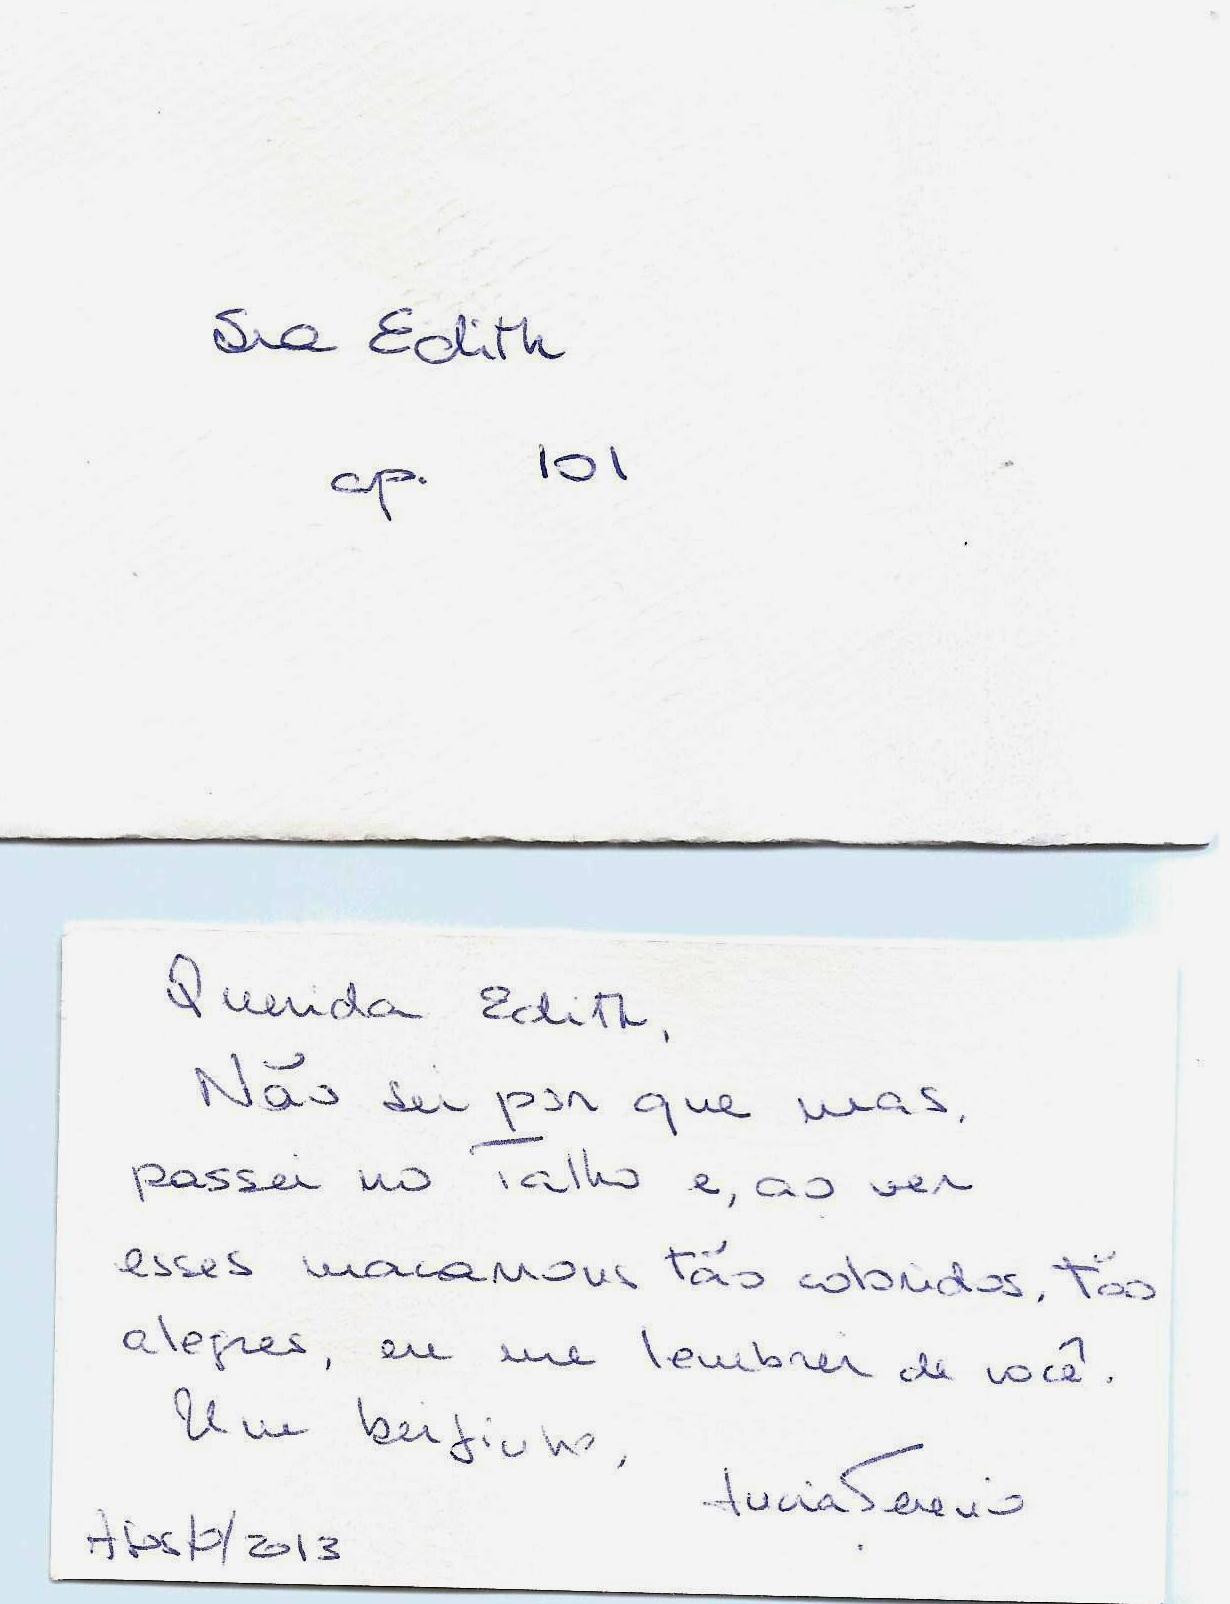 Sra Edith
ap. 101
Querida Edith,
Não sei por que mas,
passei no Talho e, ao ver
esses macarrons tão coloridos, tão
alegres, eu me lembrei de você.
Um beijinho,
Lucia
Agosto/2013